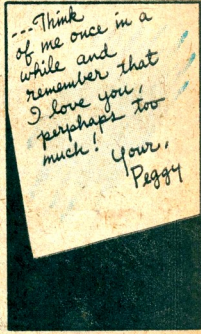 ---Think
of me once in a
while and
remember that
I love you,
perphaps too
much!
Your,
Peggy